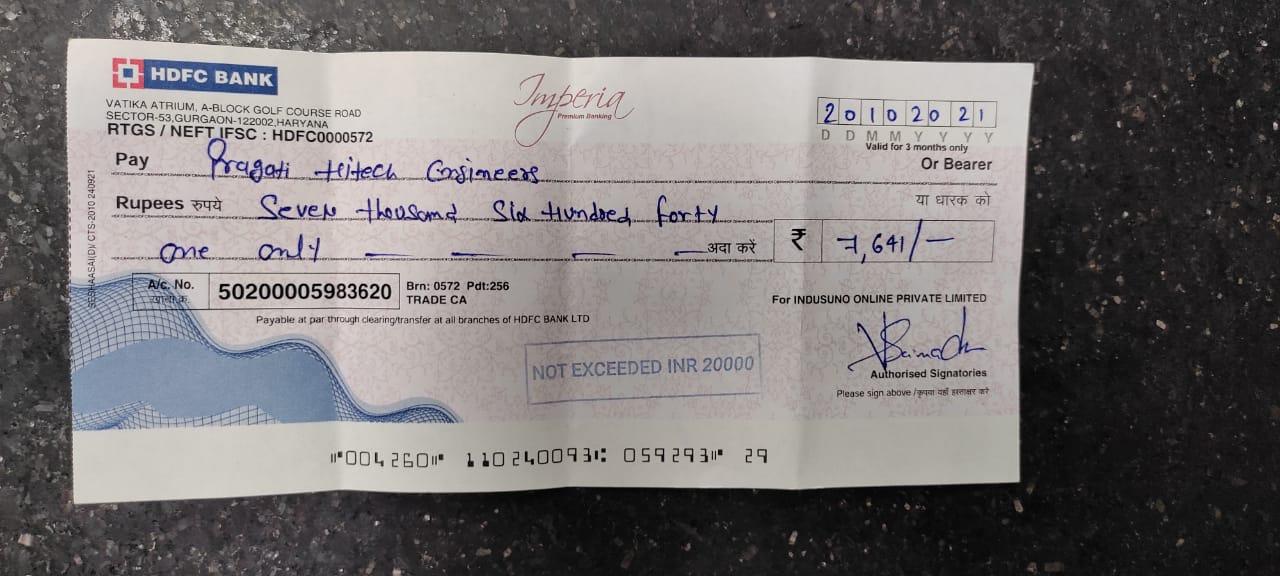 HDFC BANK
Imperia
Premium Banking
VATIKA ATRIUM, A-BLOCK GOLF COURSE ROAD
SECTOR-53,GURGAON-122002,HARYANA
RTGS / NEFT IFSC : HDFC0000572
20102021
D D M M Y Y Y Y
Valid for 3 months only
Pay Pragati Hitech Engineers Or Bearer
Rupees रुपये Seven thousand Six Hundred forty या धारक को
one only — — — — अदा करें ₹ 7,641/—
A/c. No. 50200005983620 Brn: 0572 Pdt:256
TRADE CA
Payable at par through clearing/transfer at all branches of HDFC BANK LTD
For INDUSUNO ONLINE PRIVATE LIMITED
NOT EXCEEDED INR 20000
Authorised Signatories
Please sign above /कृपया यहाँ हस्ताक्षर करें
CTS-2010 240921
⑈004260⑈ 110240093⑆ 059293⑈ 29